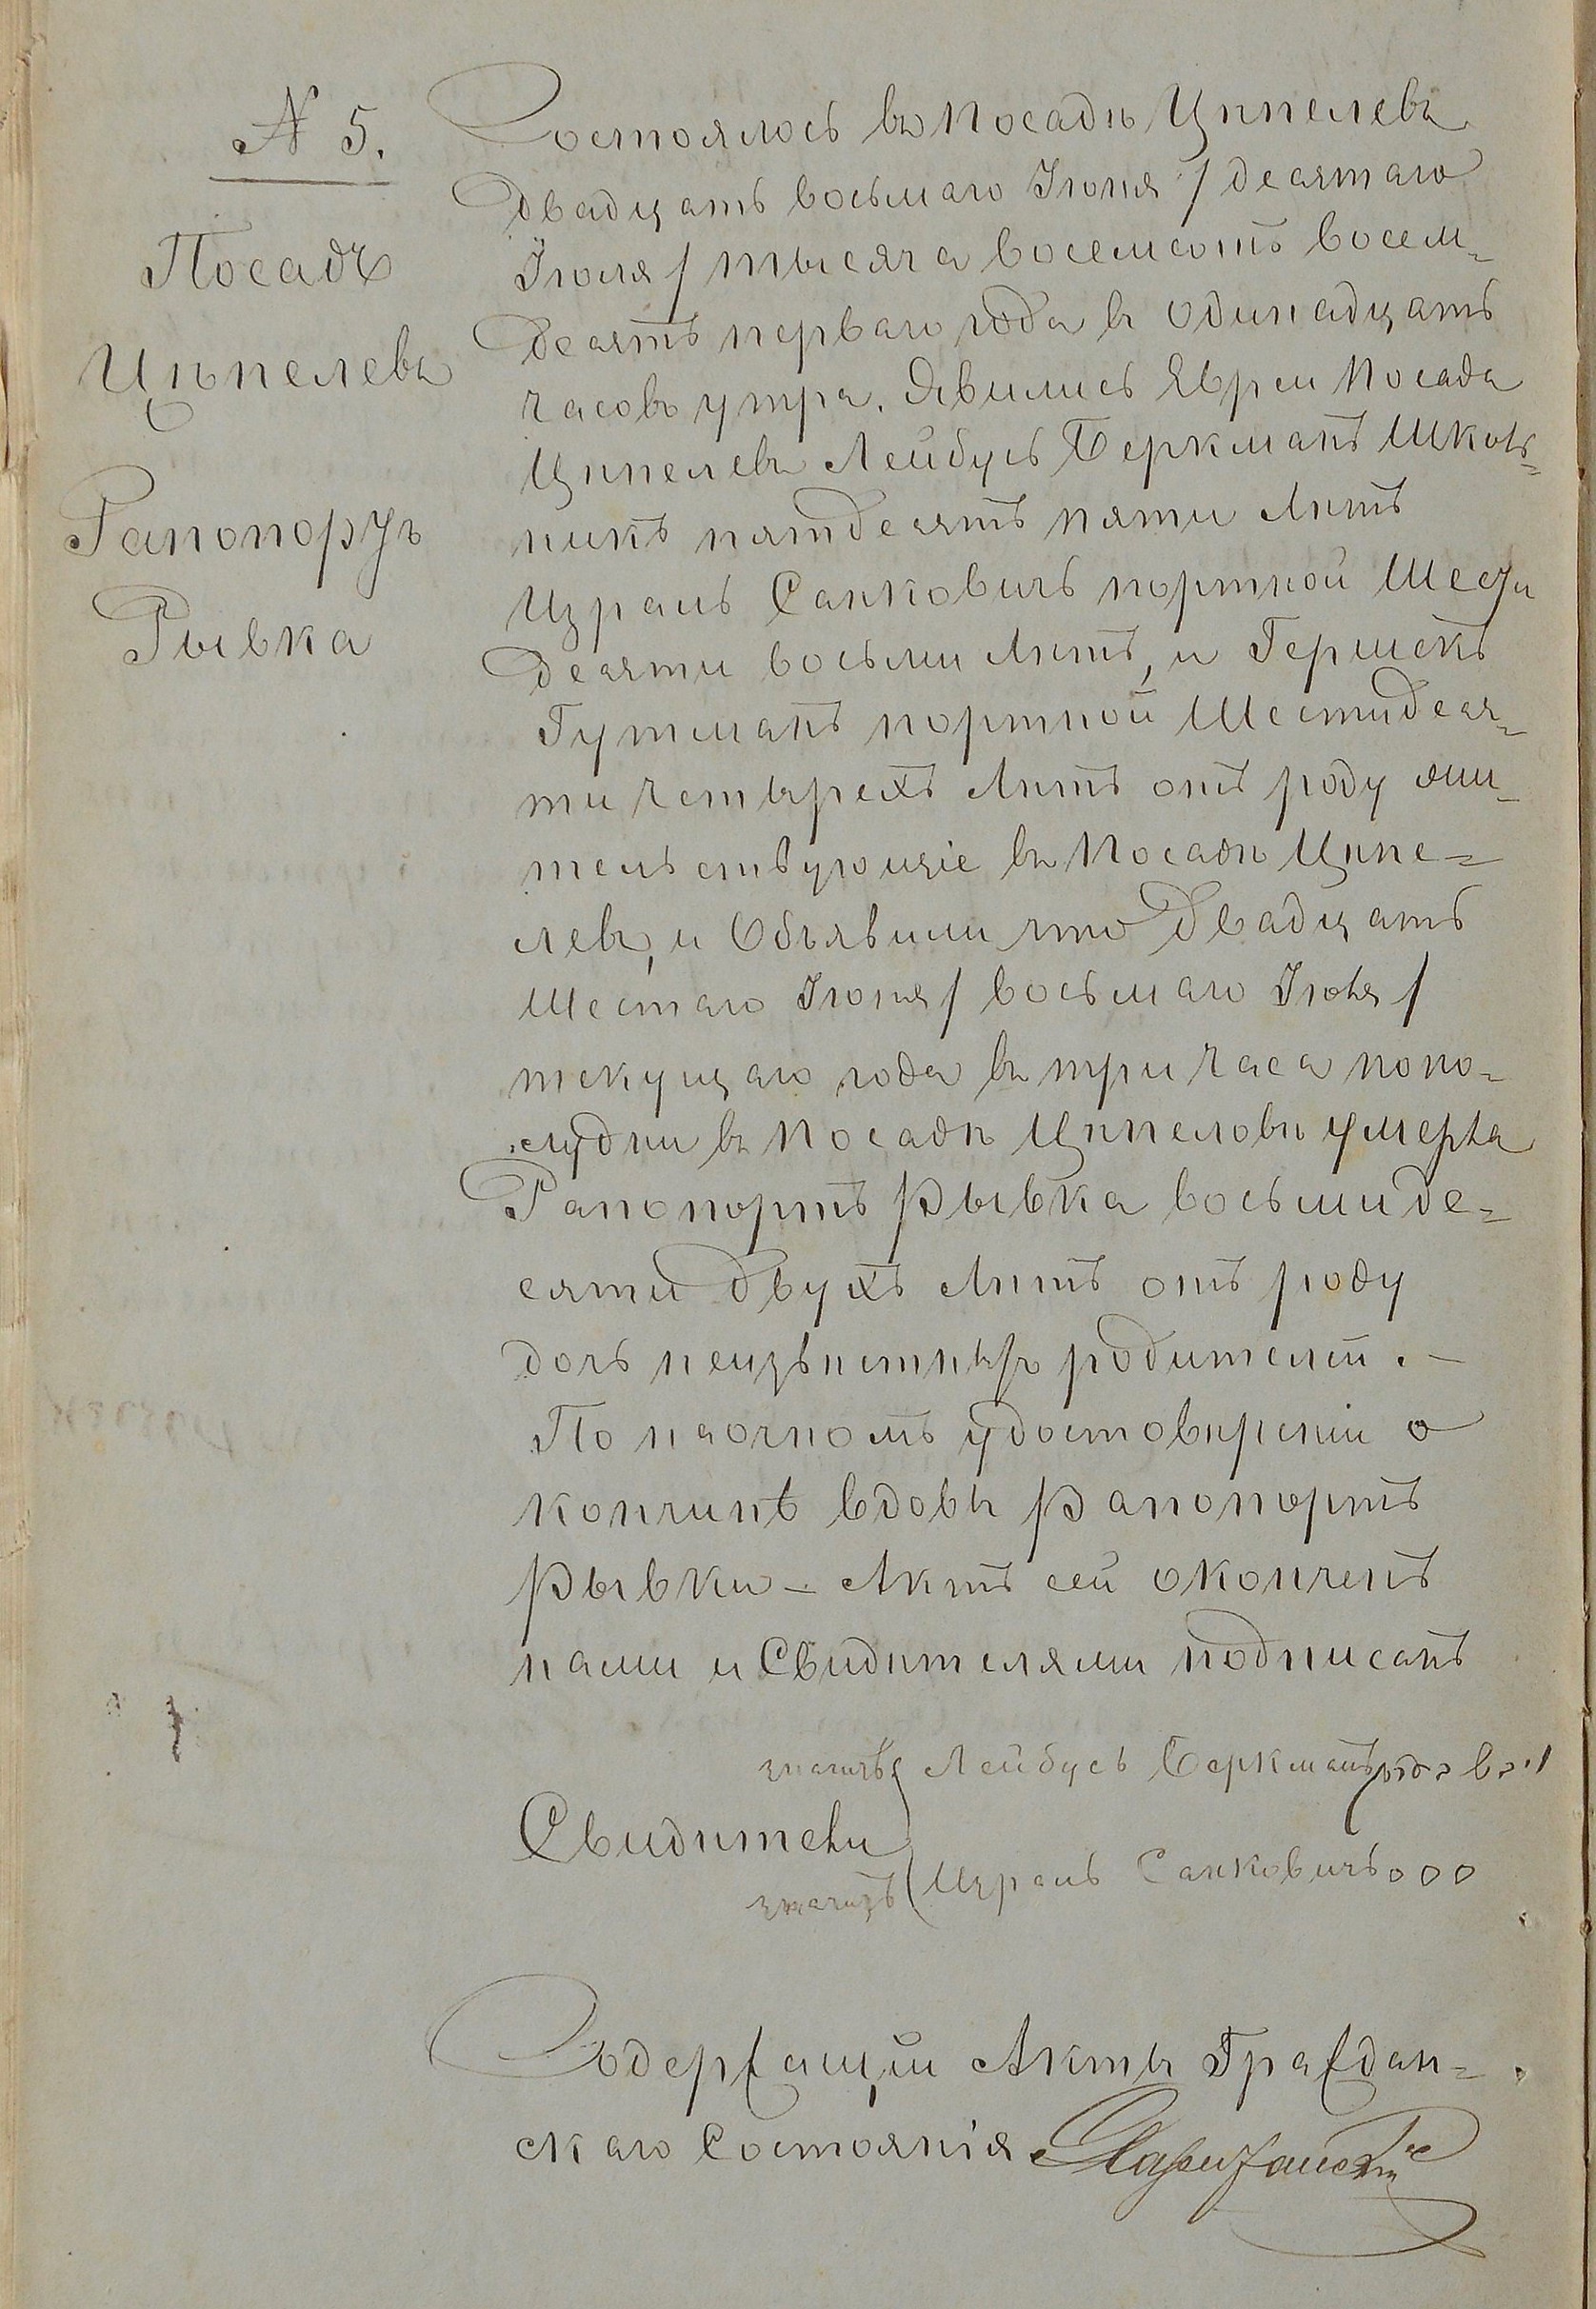 № 5.
Посадъ
Цѣпелевъ
Рапопортъ
Рывка
Состоялось въ Посадѣ Цѣпелевъ
двадцать восьмаго Іюня / десятаго
Іюля / тысяча восемсотъ восем-
десятъ перваго года въ одинадцать
часовъ утра. Явились Евреи Посада
Цѣпелевъ Лейбусь Беркманъ Школь-
никъ пятдесятъ пяти лѣтъ
Израиль Санковичъ портной Шести
десяти восьми лѣтъ, и Гершекъ
Гутманъ портной Шестидеся-
ти четырехъ лѣтъ отъ роду жи-
тельствующіе въ Посадѣ Цѣпе-
левъ, и Объявили что двадцать
Шестаго Іюня / восьмаго Іюля /
текущаго года въ три часа попо-
лудни въ Посадѣ Цѣпеловѣ умерла
Рапопортъ Рывка восьмиде-
сяти двухъ лѣтъ отъ роду
дочь неизвѣстныхъ родителей. —
По наочномъ удостовѣреніи о
кончинѣ вдовы Рапопортъ
Рывки — Актъ сей оконченъ
нами и Свидѣтелями подписанъ
Лейбусь Беркманъ
Свидѣтели
Израиль Санковичъ ооо
Содержащій Акты Граждан-
скаго Состоянія